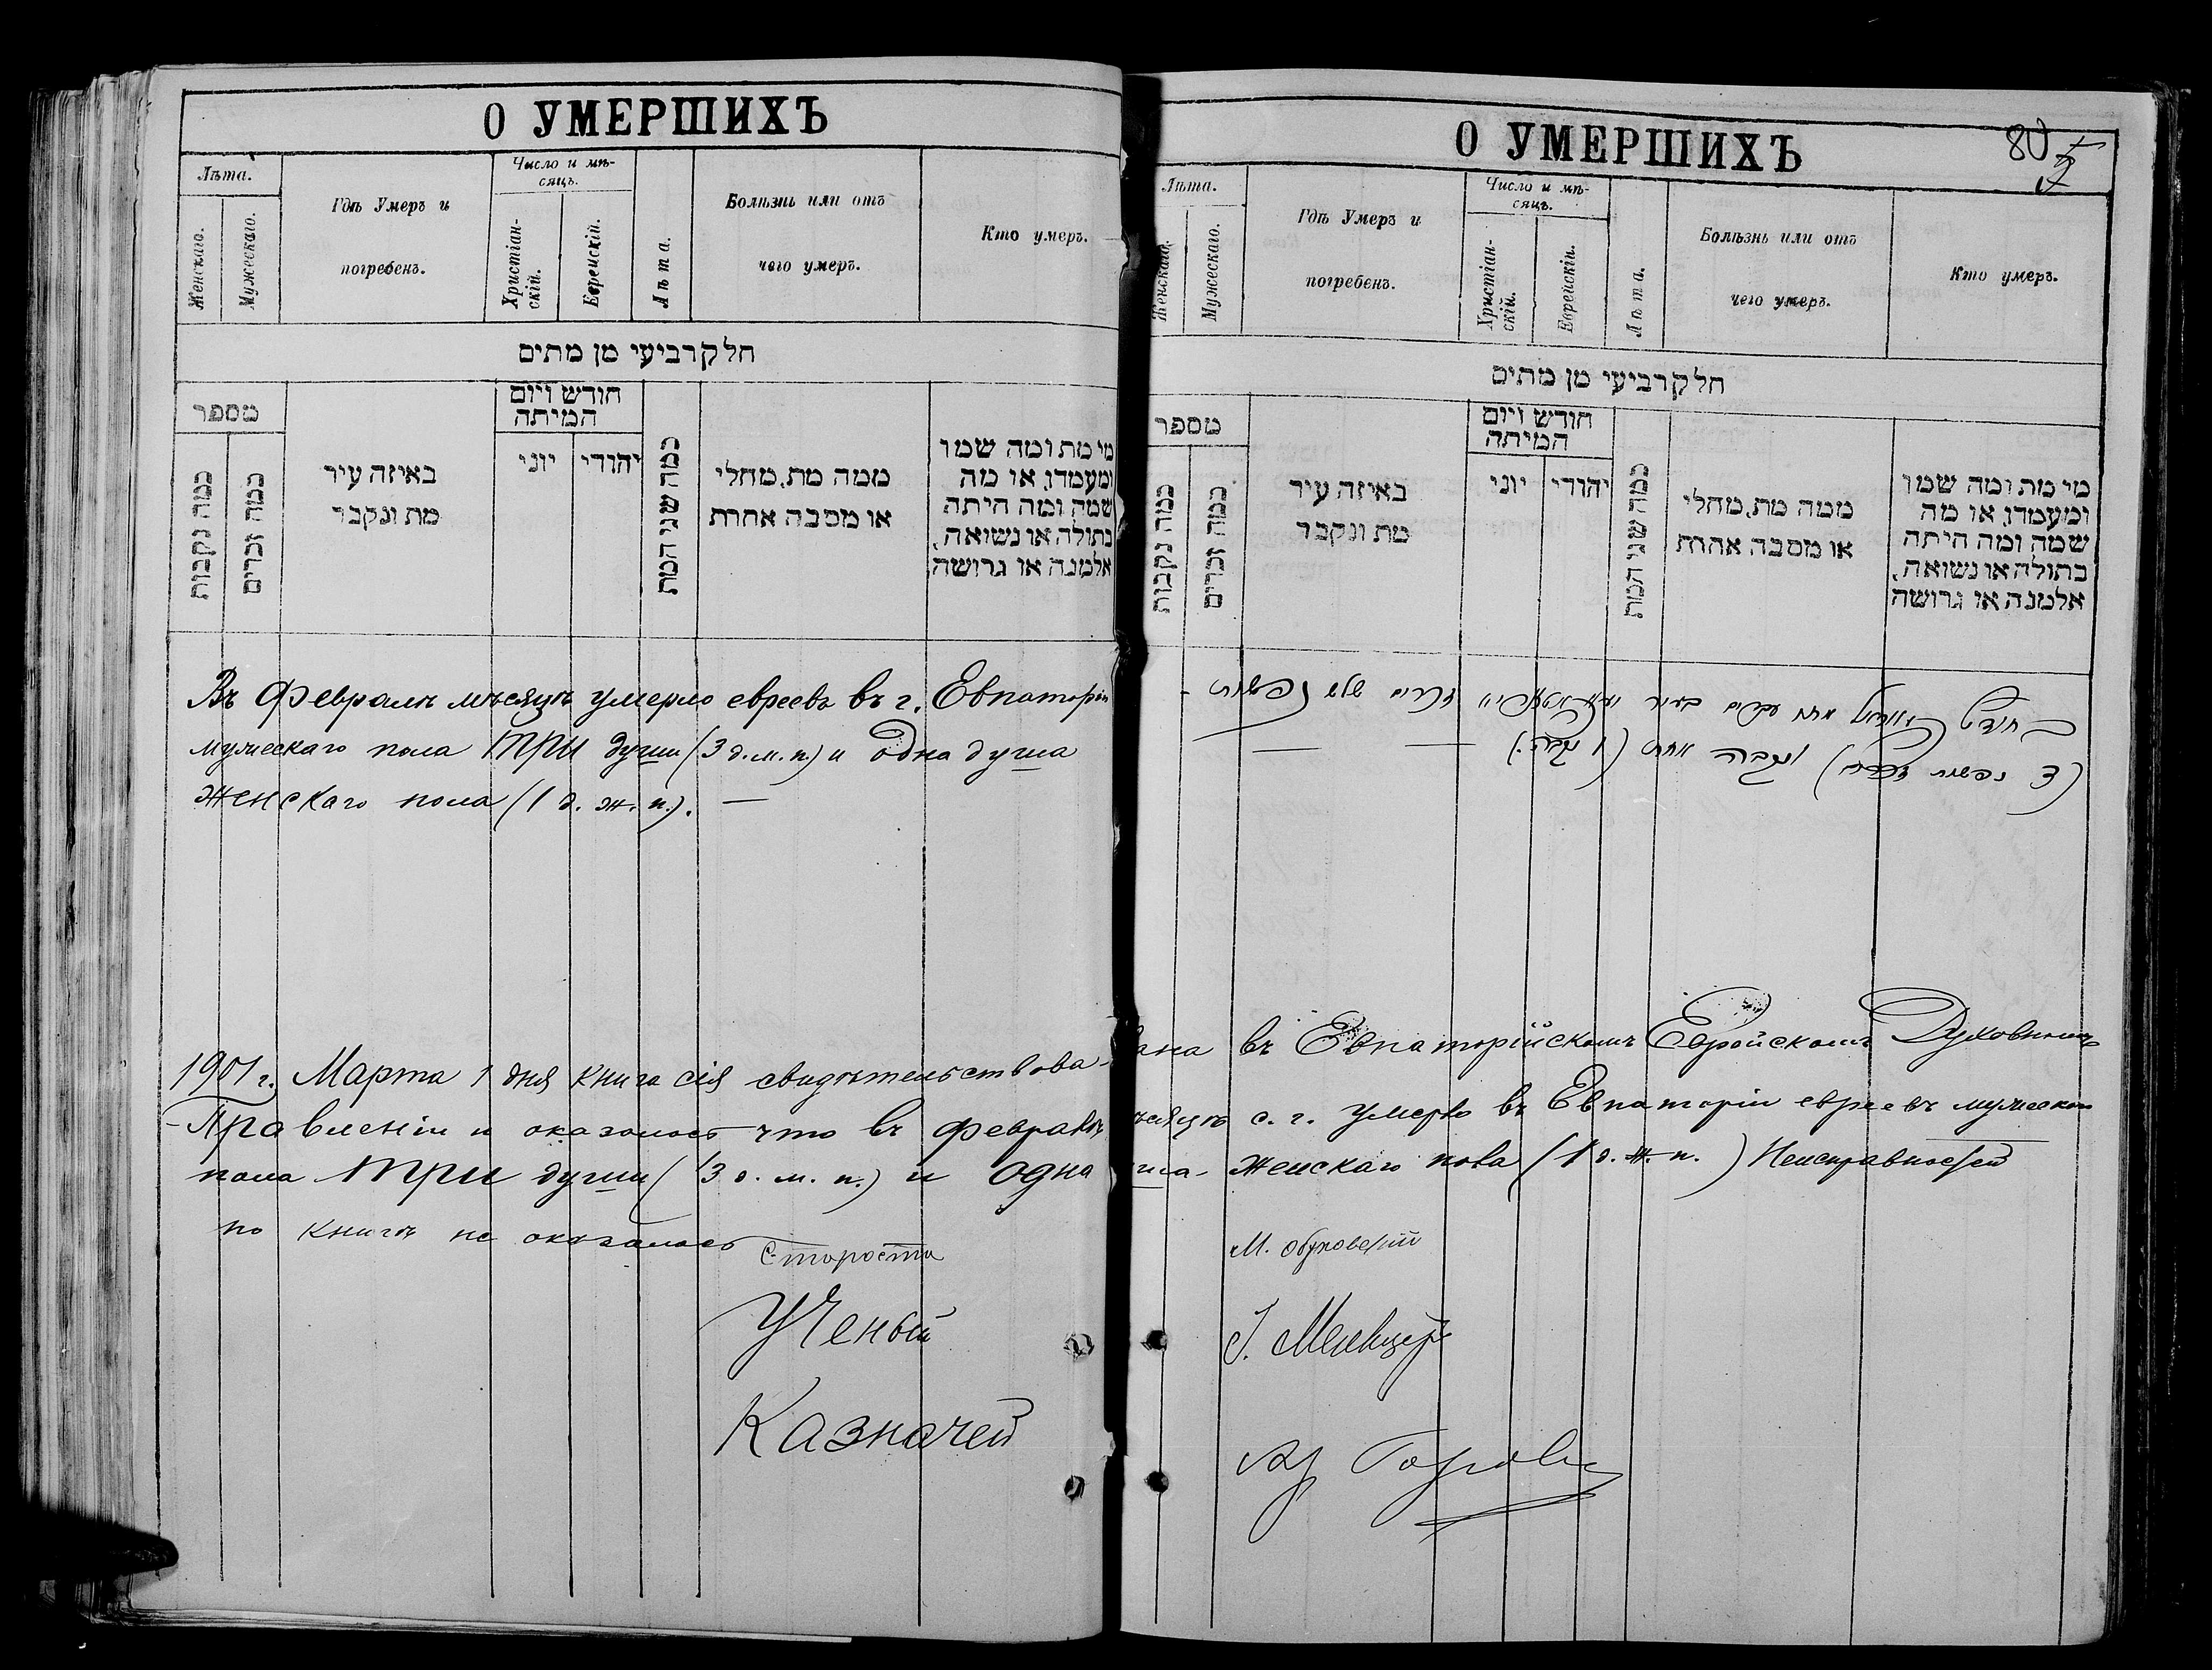 О УМЕРШИХЪ
Лѣта.
Женскаго.
Мужескаго.
Гдѣ Умеръ и
погребенъ.
Число и мѣ-
сяцъ.
Христіан-
скій.
Еврейскій.
Лѣта.
Болѣзнь или отъ
чего умеръ.
Кто умеръ.
חלק רביעי מן מתים
מספר
כמה נקבות
כמה זכרים
באיזה עיר
מת ונקבר
חודש ויום
המיתה
יוני
יהודי
כמה שני המת
ממה מת, מחלי
או מסבה אחרת
מי מת ומה שמו
ומעמדו, או מה
שמה ומה היתה
בתולה או נשואה,
אלמנה או גרושה
Въ Февралѣ мѣсяцѣ умерло евреевъ въ г. Евпаторіи
мужескаго пола три души (3 д. м. п.) и одна душа
женскаго пола (1 д. ж. п.). —
1901 г. Марта 1 дня книга сія свидѣтельствова-
Правленіи и оказалось что въ Февралѣ
пола три души (3 д. м. п.) и одна
по книгѣ не оказалось
Староста
Ученый
Казначей
О УМЕРШИХЪ
80
Лѣта.
Женскаго.
Мужескаго.
Гдѣ Умеръ и
погребенъ.
Число и мѣ-
сяцъ.
Христіан-
скій.
Еврейскій.
Лѣта.
Болѣзнь или отъ
чего умеръ.
Кто умеръ.
חלק רביעי מן מתים
מספר
כמה נקבות
כמה זכרים
באיזה עיר
מת ונקבר
חודש ויום
המיתה
יוני
יהודי
כמה שני המת
ממה מת, מחלי
או מסבה אחרת
מי מת ומה שמו
ומעמדו, או מה
שמה ומה היתה
בתולה או נשואה,
אלמנה או גרושה
זכרים שלש נפשות
(3 נפשות זכרים) ונקבה אחת (1 נקבה) — —
ана въ Евпаторійскомъ Еврейскомъ Духовномъ
мѣсяцѣ с. г. умерло въ Евпаторіи евреевъ мужеского
женскаго пола (1 д. ж. п.) Неисправностей
М. Обуховскій